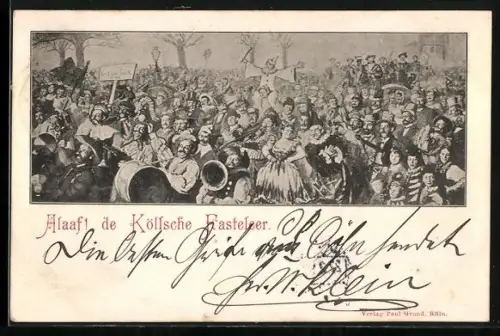 Alaaft de Köllsche Fasteleer.
Die besten Grüße aus Köln sendet
Klein
Verlag Paul Grund, Köln.